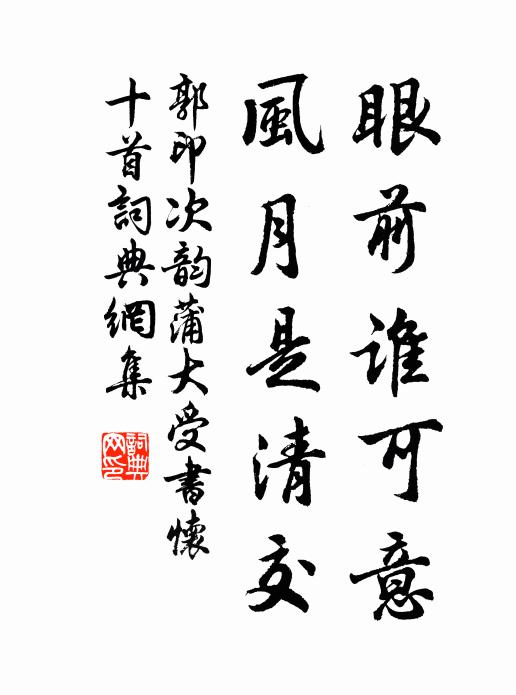 眼前谁可意
風月是清交
郭印次韵蒲大受書懷
十首詞典網集
詞典网印